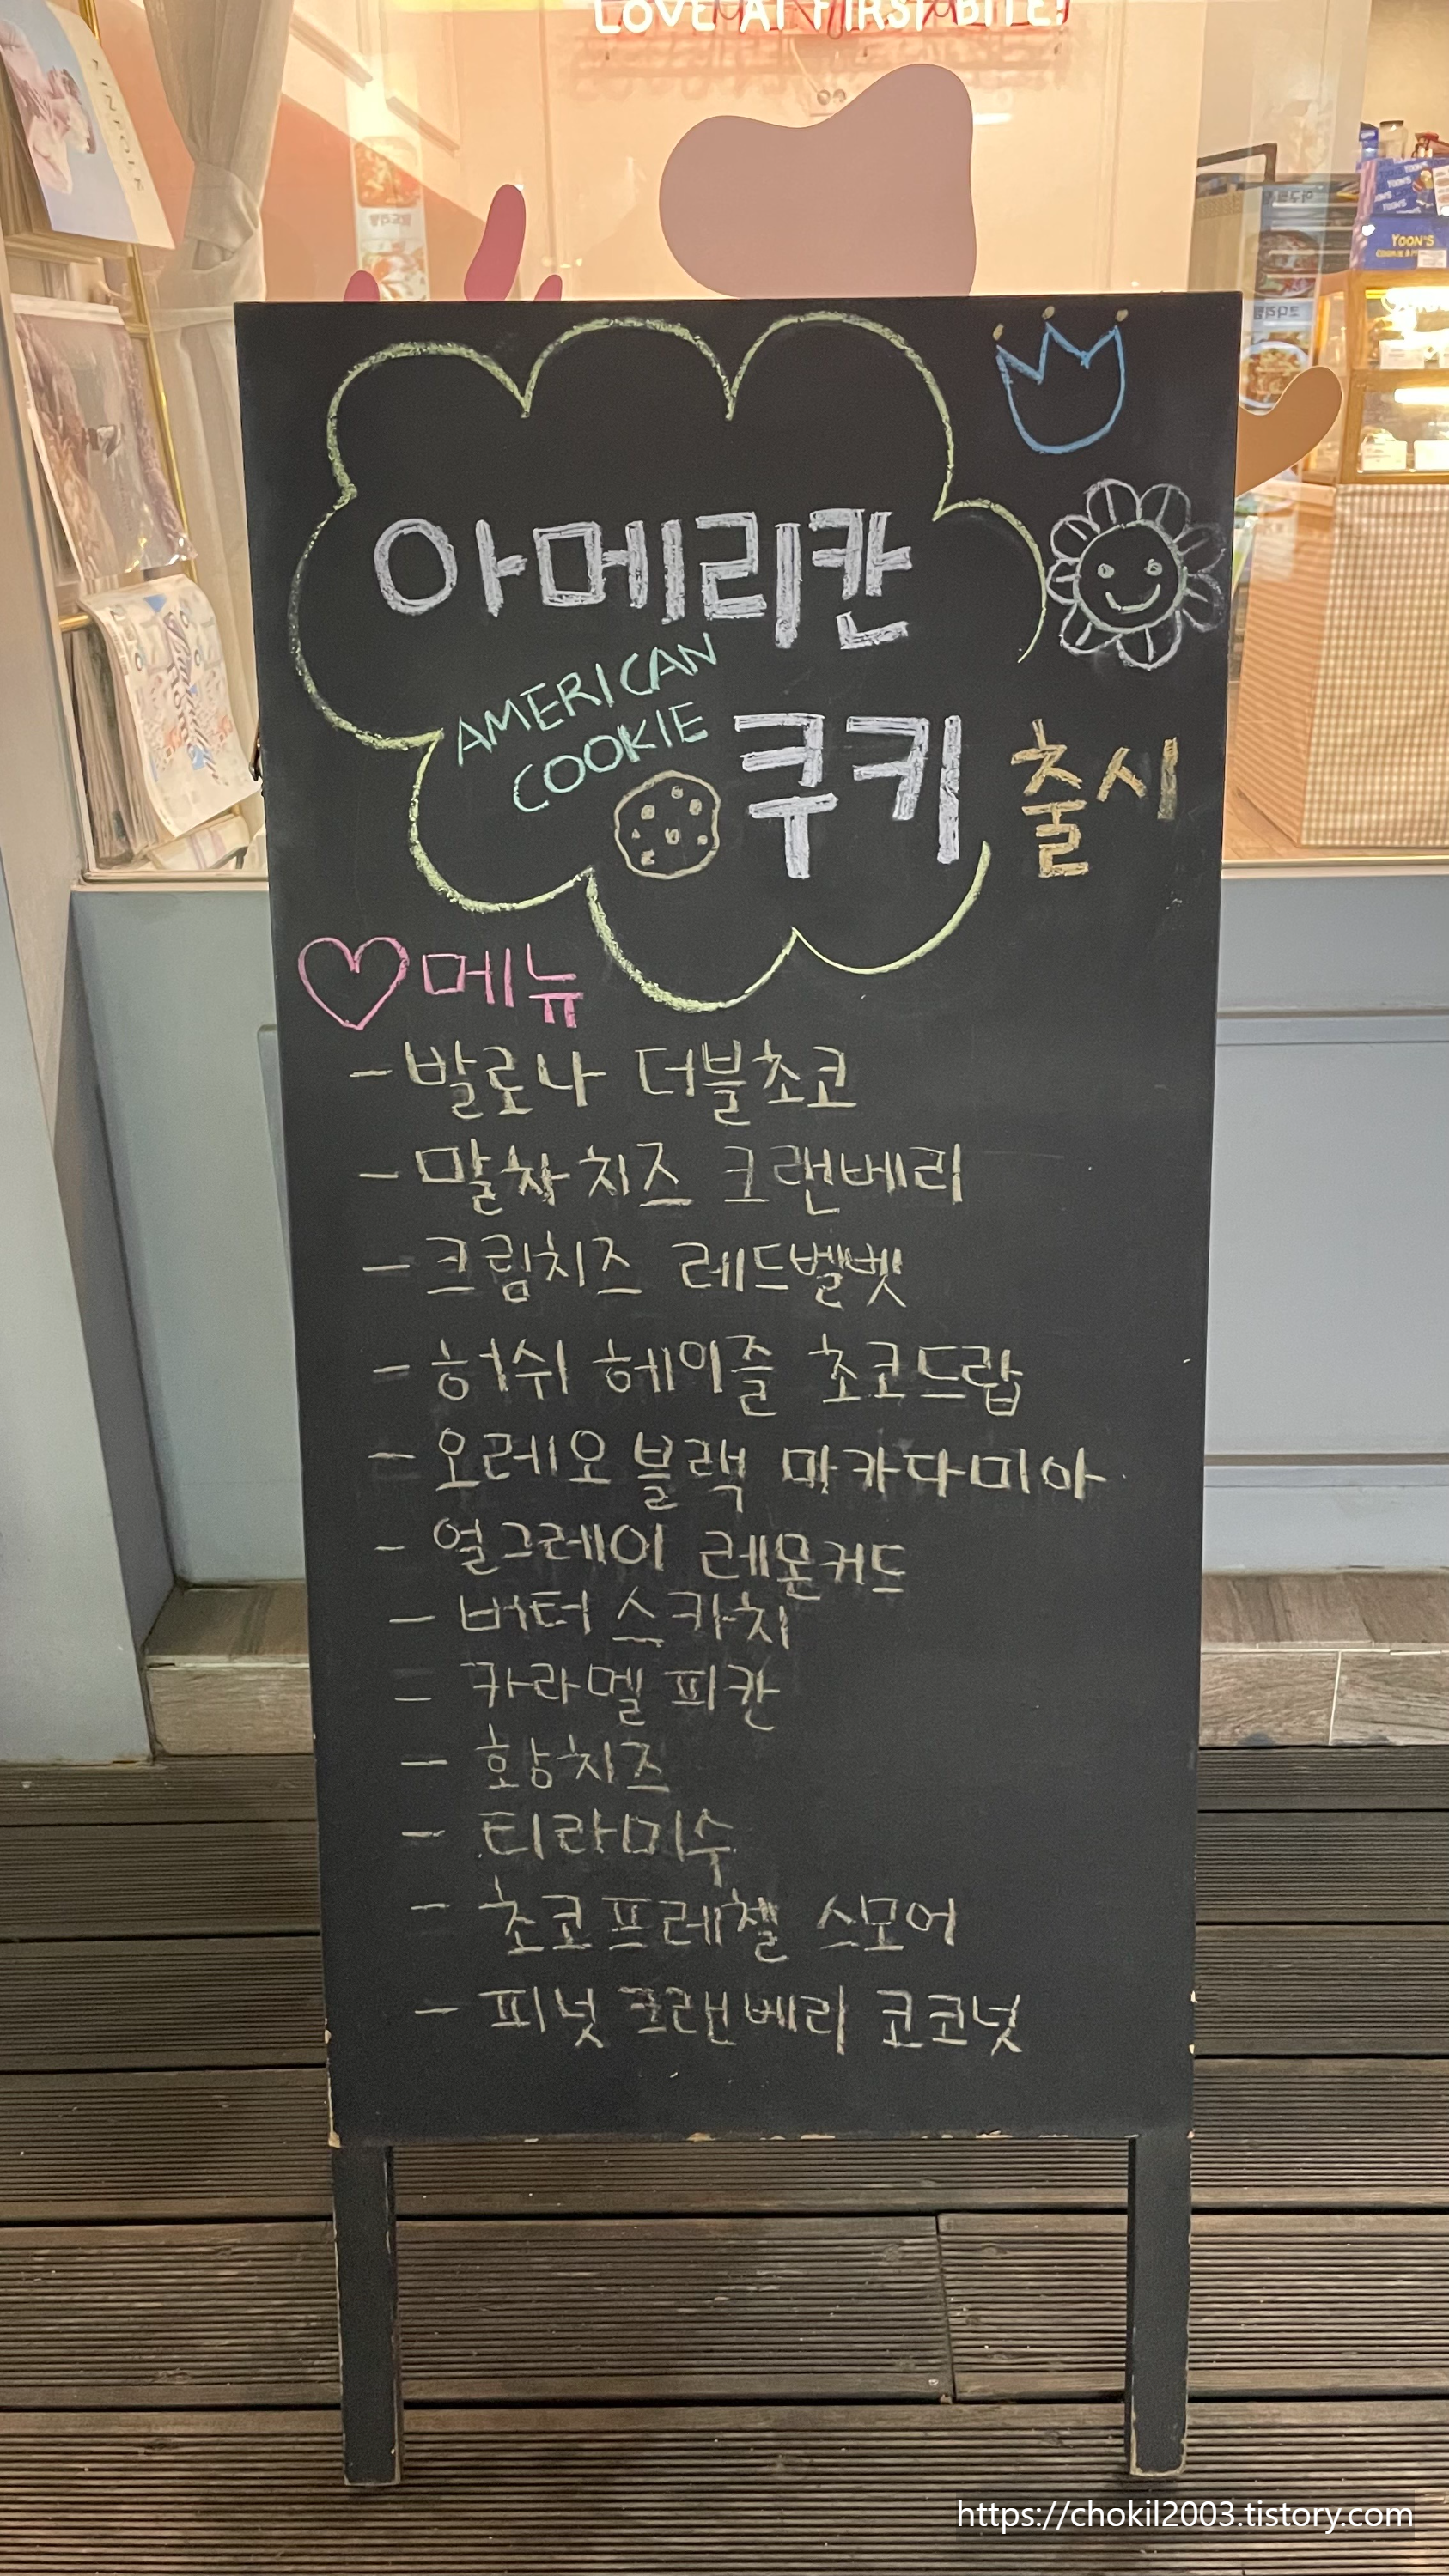 LOVE AT FIRST BITE!
YOON'S
아메리칸
AMERICAN
COOKIE
쿠키 출시
메뉴
- 발로나 더블초코
- 말차치즈 크랜베리
- 크림치즈 레드벨벳
- 허쉬 헤이즐 초코드랍
- 오레오블랙 마카다미아
- 얼그레이 레몬커드
- 버터스카치
- 카라멜 피칸
- 황치즈
- 티라미수
- 초코프레첼 스모어
- 피넛크랜베리 코코넛
https://chokil2003.tistory.com